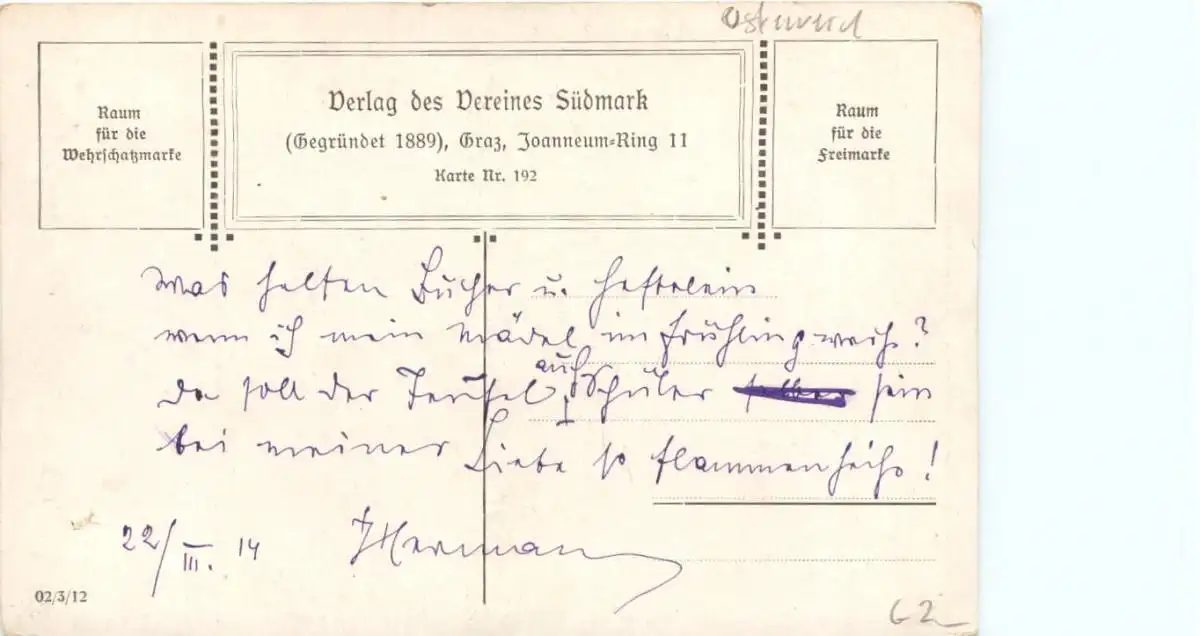 Raum
für die
Wehrschatzmarke
Verlag des Vereines Südmark
(Gegründet 1889), Graz, Joanneum-Ring 11
Karte Nr. 192
Raum
für die
Freimarke
Was helfen Bücher u. Heftelein
wenn ich mein Mädel im Frühling weiß?
Da soll der Teufel auch Schüler sein
bei meiner Liebe so flammenheiß!
22/III. 14
Herman
02/3/12
62